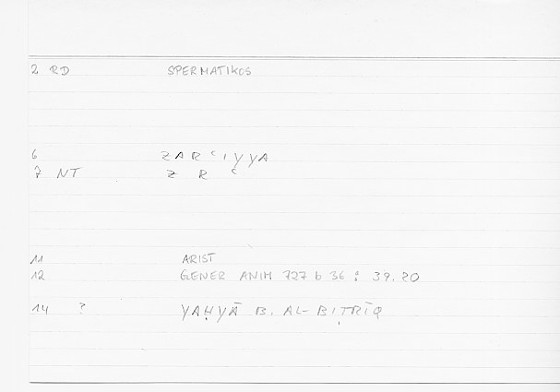 2 RD SPERMATIKOS
6 ZARʿIYYA
7 NT Z R ʿ
11 ARIST
12 GENER ANIM 727 b 36 : 39.20
14 ? YAḤYĀ B. AL-BIṬRĪQ